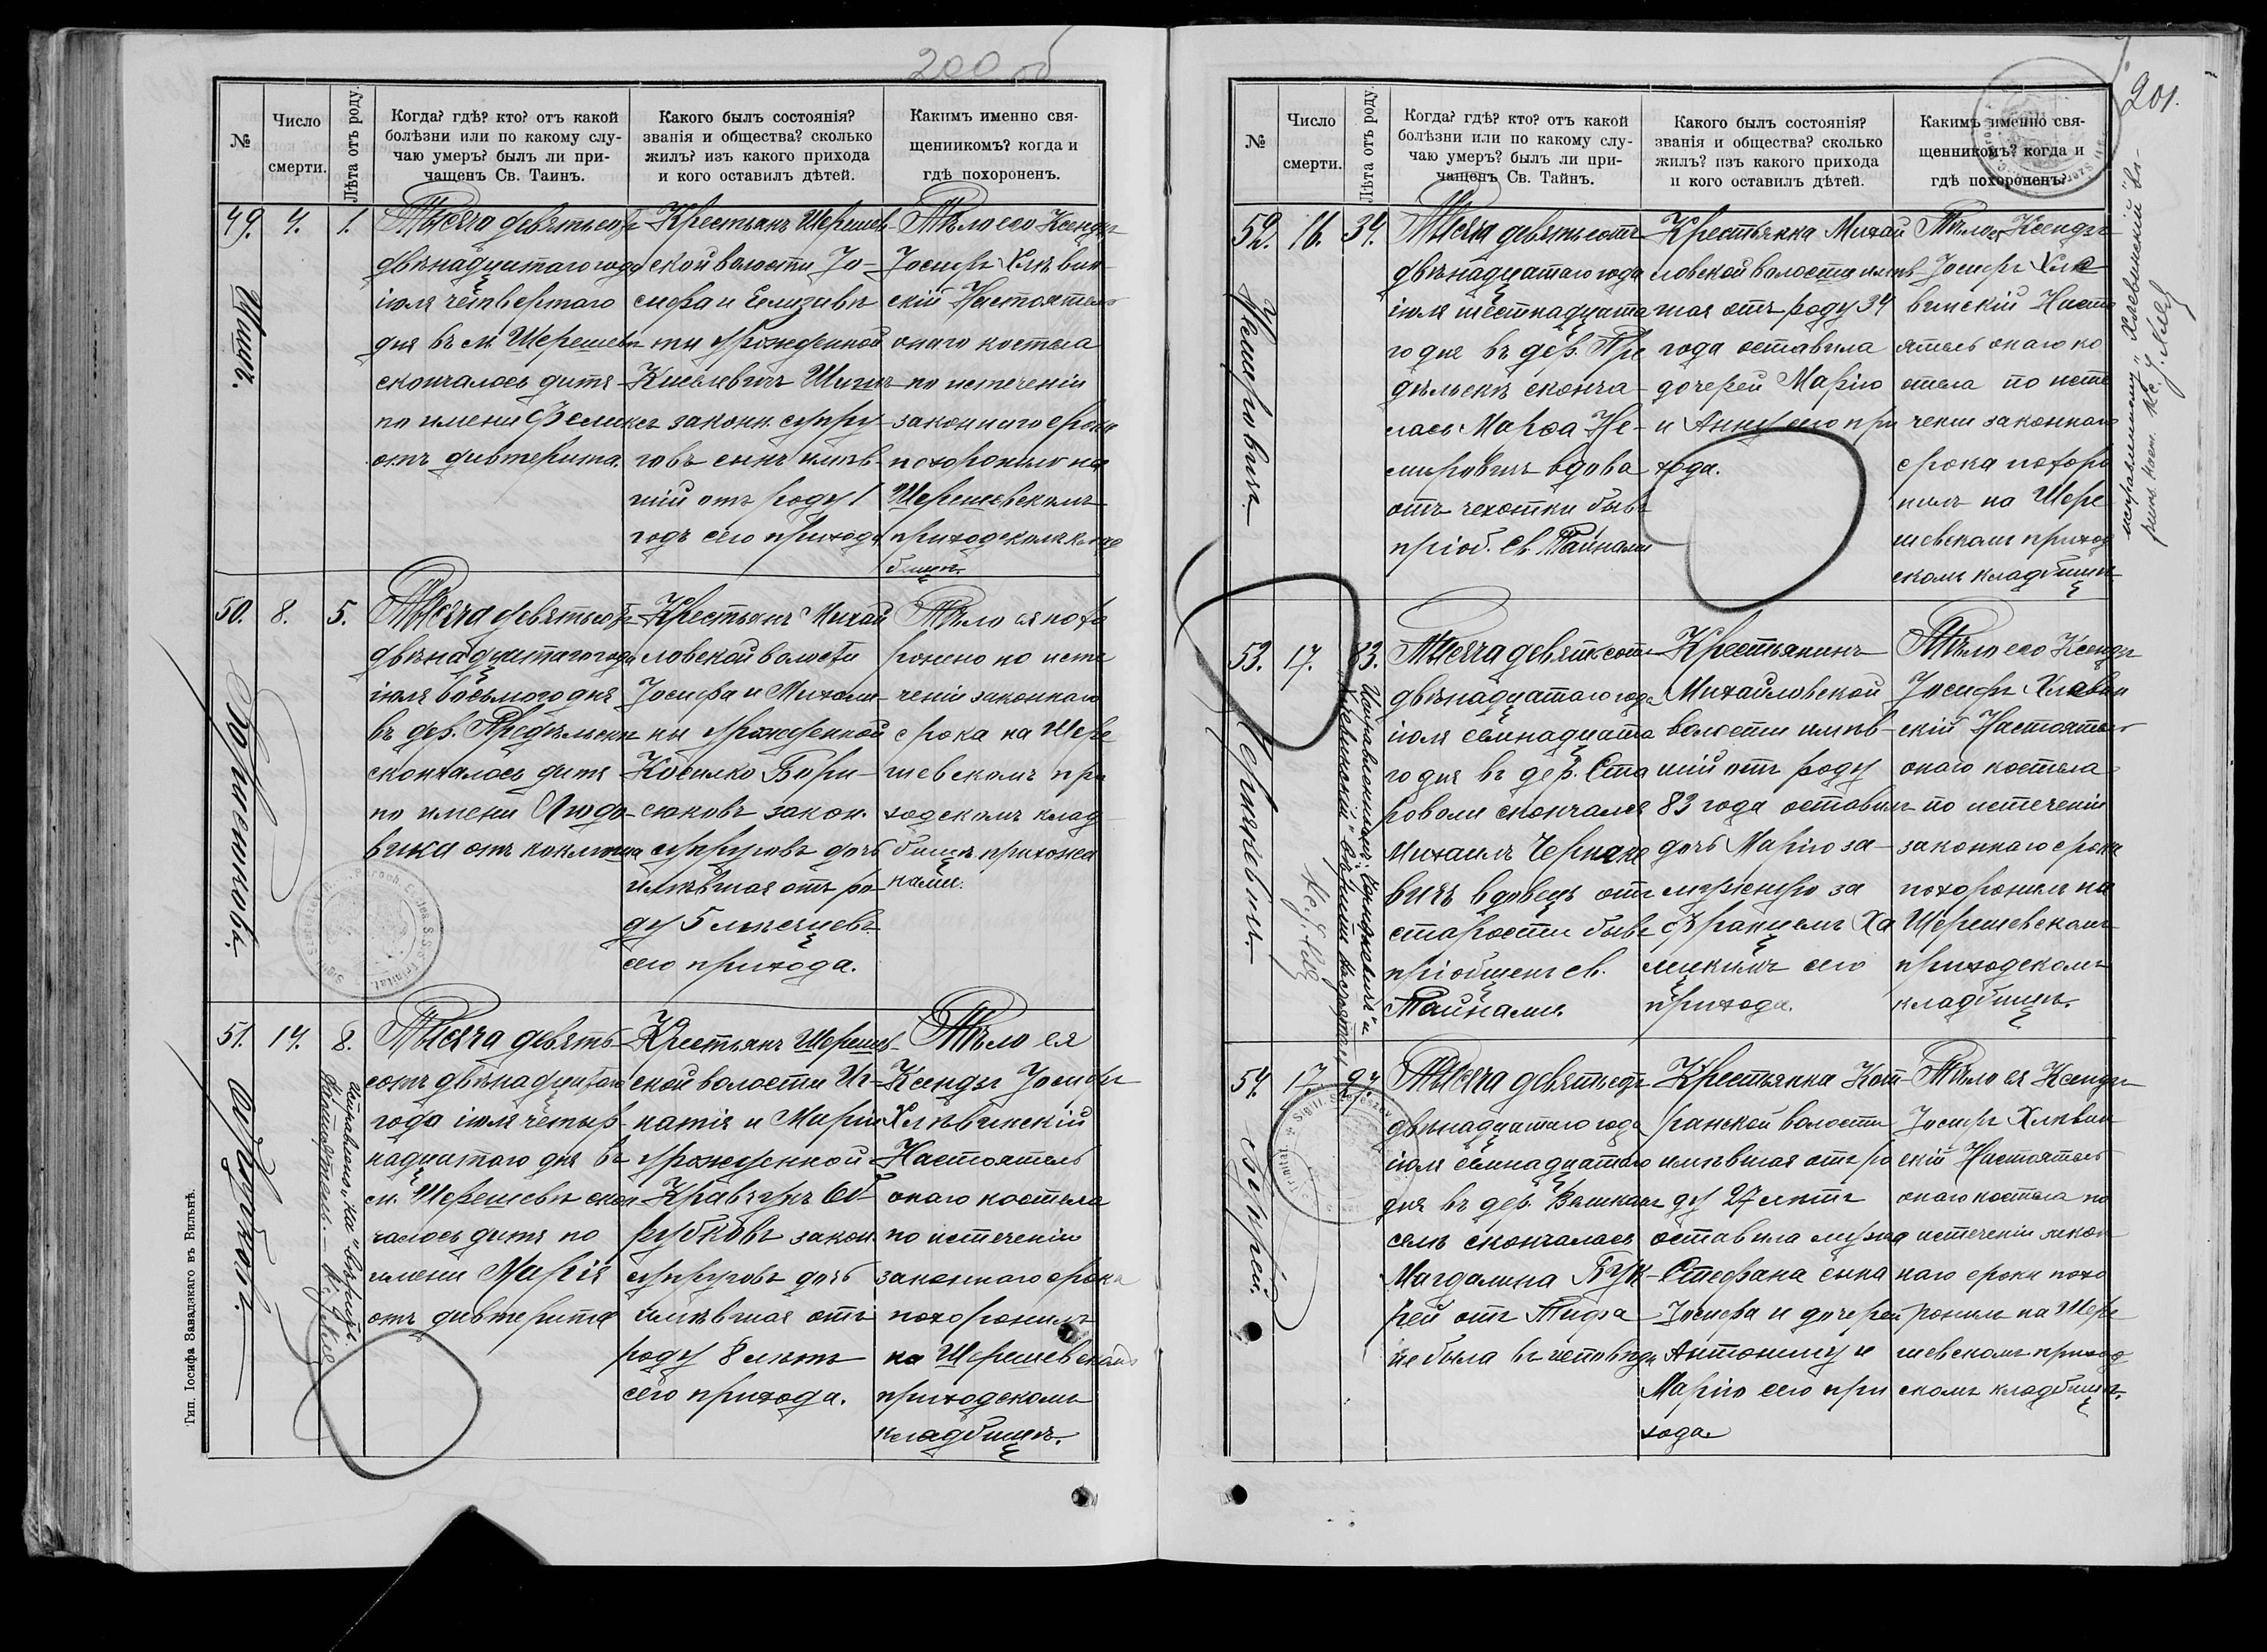 200 об
№
Число
смерти.
Лѣта отъ роду.
Когда? гдѣ? кто? отъ какой
болѣзни или по какому слу-
чаю умеръ? былъ ли при-
чащенъ Св. Таинъ.
Какого былъ состоянія?
званія и общества? сколько
жилъ? изъ какого прихода
и кого оставилъ дѣтей.
Какимъ именно свя-
щенникомъ? когда и
гдѣ похороненъ.
49.
4.
1.
Шицъ.
Тысяча девятьсотъ
двѣнадцатаго года
іюля четвертаго
дня въ м. Шерешевѣ
скончалось дитя
по имени Феликсъ
отъ дифтерита.
Крестьянъ Шерешев-
ской волости Іо-
сифа и Елизаве-
ты урожденной
Шицъ
законн. супру-
говъ сынъ имѣв-
шій отъ роду 1
годъ сего прихода
Тѣло его Ксендзъ
Іосифъ Хлѣвин-
скій Настоятель
онаго костела
по истеченіи
законнаго срока
похоронилъ на
Шерешевскомъ
приходскомъ клад-
бищѣ.
50.
8.
5.
Борисюковъ.
Тысяча девятьсотъ
двѣнадцатаго года
іюля восьмого дня
въ дер. Предѣльскѣ
скончалось дитя
по имени Людо-
вика отъ коклюша
Крестьянъ Михай
ловской волости
Іосифа и Михали-
ны урожденной
Косилко Бори-
сюковъ закон.
супруговъ дочь
имѣвшая отъ ро-
ду 5 мѣсяцевъ
сего прихода.
Тѣло ея похо
ронено по исте
ченіи законнаго
срока на Шере
шевскомъ при
ходскомъ клад
бищѣ прихожа
нами.
51.
14.
8.
Тысяча девять-
сотъ двѣнадцатаго
года іюля четыр-
надцатаго дня въ
м. Шерешевѣ скон-
чалось дитя по
имени Марія
отъ дифтерита
Крестьянъ Шерешев-
ской волости Иг-
натія и Маріи
урожденной
закон.
супруговъ дочь
имѣвшая отъ
роду 8 лѣтъ
сего прихода.
Тѣло ея
Ксендзъ Іосифъ
Хлѣвинскій
Настоятель
онаго костела
по истеченіи
законнаго срока
похоронилъ
на Шерешевскомъ
приходскомъ
кладбищѣ.
Тип. Іосифа Завадзкаго въ Вильнѣ.
201.
№
Число
смерти.
Лѣта отъ роду.
Когда? гдѣ? кто? отъ какой
болѣзни или по какому слу-
чаю умеръ? былъ ли при-
чащенъ Св. Тайнъ.
Какого былъ состоянія?
званія и общества? сколько
жилъ? изъ какого прихода
и кого оставилъ дѣтей.
Какимъ именно свя-
щенникомъ? когда и
гдѣ похороненъ?
52.
16.
34.
Немировичъ.
Тысяча девятьсотъ
двѣнадцатаго года
іюля шестнадцата
го дня въ дер. Пре
дѣльскѣ сконча-
лась Марѳа Не-
мировичъ вдова
отъ чахотки бывъ
пріоб. Св. Тайнами
Крестьянка Михай
ловской волости имѣв-
шая отъ роду 34
года оставила
дочерей Марію
и Анну сего при
хода.
Тѣло ея Ксендзъ
Іосифъ Хлѣ
винскій Насто
ятель онаго ко
стела по исте
ченіи законнаго
срока похоро
нилъ на Шере
шевскомъ приход
скомъ кладбищѣ
53.
17.
83.
Тысяча девятьсотъ
двѣнадцатаго года
іюля семнадцата
го дня въ дер. Ста
роволи скончался
Михаилъ
вдовецъ отъ
старости бывъ
пріобщенъ св.
Тайнами.
Крестьянинъ
Михайловской
волости имѣв-
шій отъ роду
83 года оставилъ
дочь Марію за-
мужнюю за
Францемъ Ха
сего
прихода.
Тѣло его Ксендзъ
Іосифъ Хлѣвин
скій Настоятель
онаго костела
по истеченіи
законнаго срока
похоронилъ на
Шерешевскомъ
приходскомъ
кладбищѣ.
54.
17.
27.
Букрей.
Тысяча девятьсотъ
двѣнадцатаго года
іюля семнадцатаго
дня въ дер. Великомъ
селѣ скончалась
Магдалина Бук-
рей отъ Тифа
не была въ исповѣди
Крестьянка Кот-
ранской волости
имѣвшая отъ ро
ду 27 лѣтъ
оставила мужа
Стефана сына
Іосифа и дочерей
Антонину и
Марію сего при
хода.
Тѣло ея Ксендзъ
Іосифъ Хлѣвин
скій Настоятель
онаго костела по
истеченіи закон
наго срока похо
ронилъ на Шере
шевскомъ приход
скомъ кладбищѣ.